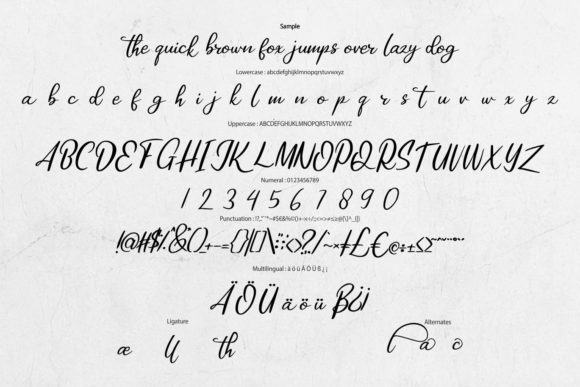 Sample
the quick brown fox jumps over lazy dog
Lowercase : abcdefghijklmnopqrstuvwxyz
a b c d e f g h i j k l m n o p q r s t u v w x y z
Uppercase : ABCDEFGHIJKLMNOPQRSTUVWXYZ
ABCDEFGHIJKLMNOPQRSTUVWXYZ
Numeral : 0123456789
1 2 3 4 5 6 7 8 9 0
Punctuation :
Multilingual : ä ö ü Ä Ö Ü ß ¿ ¡
ÄÖÜ äöü ß¿¡
Ligature
Alternates
æ
th
a